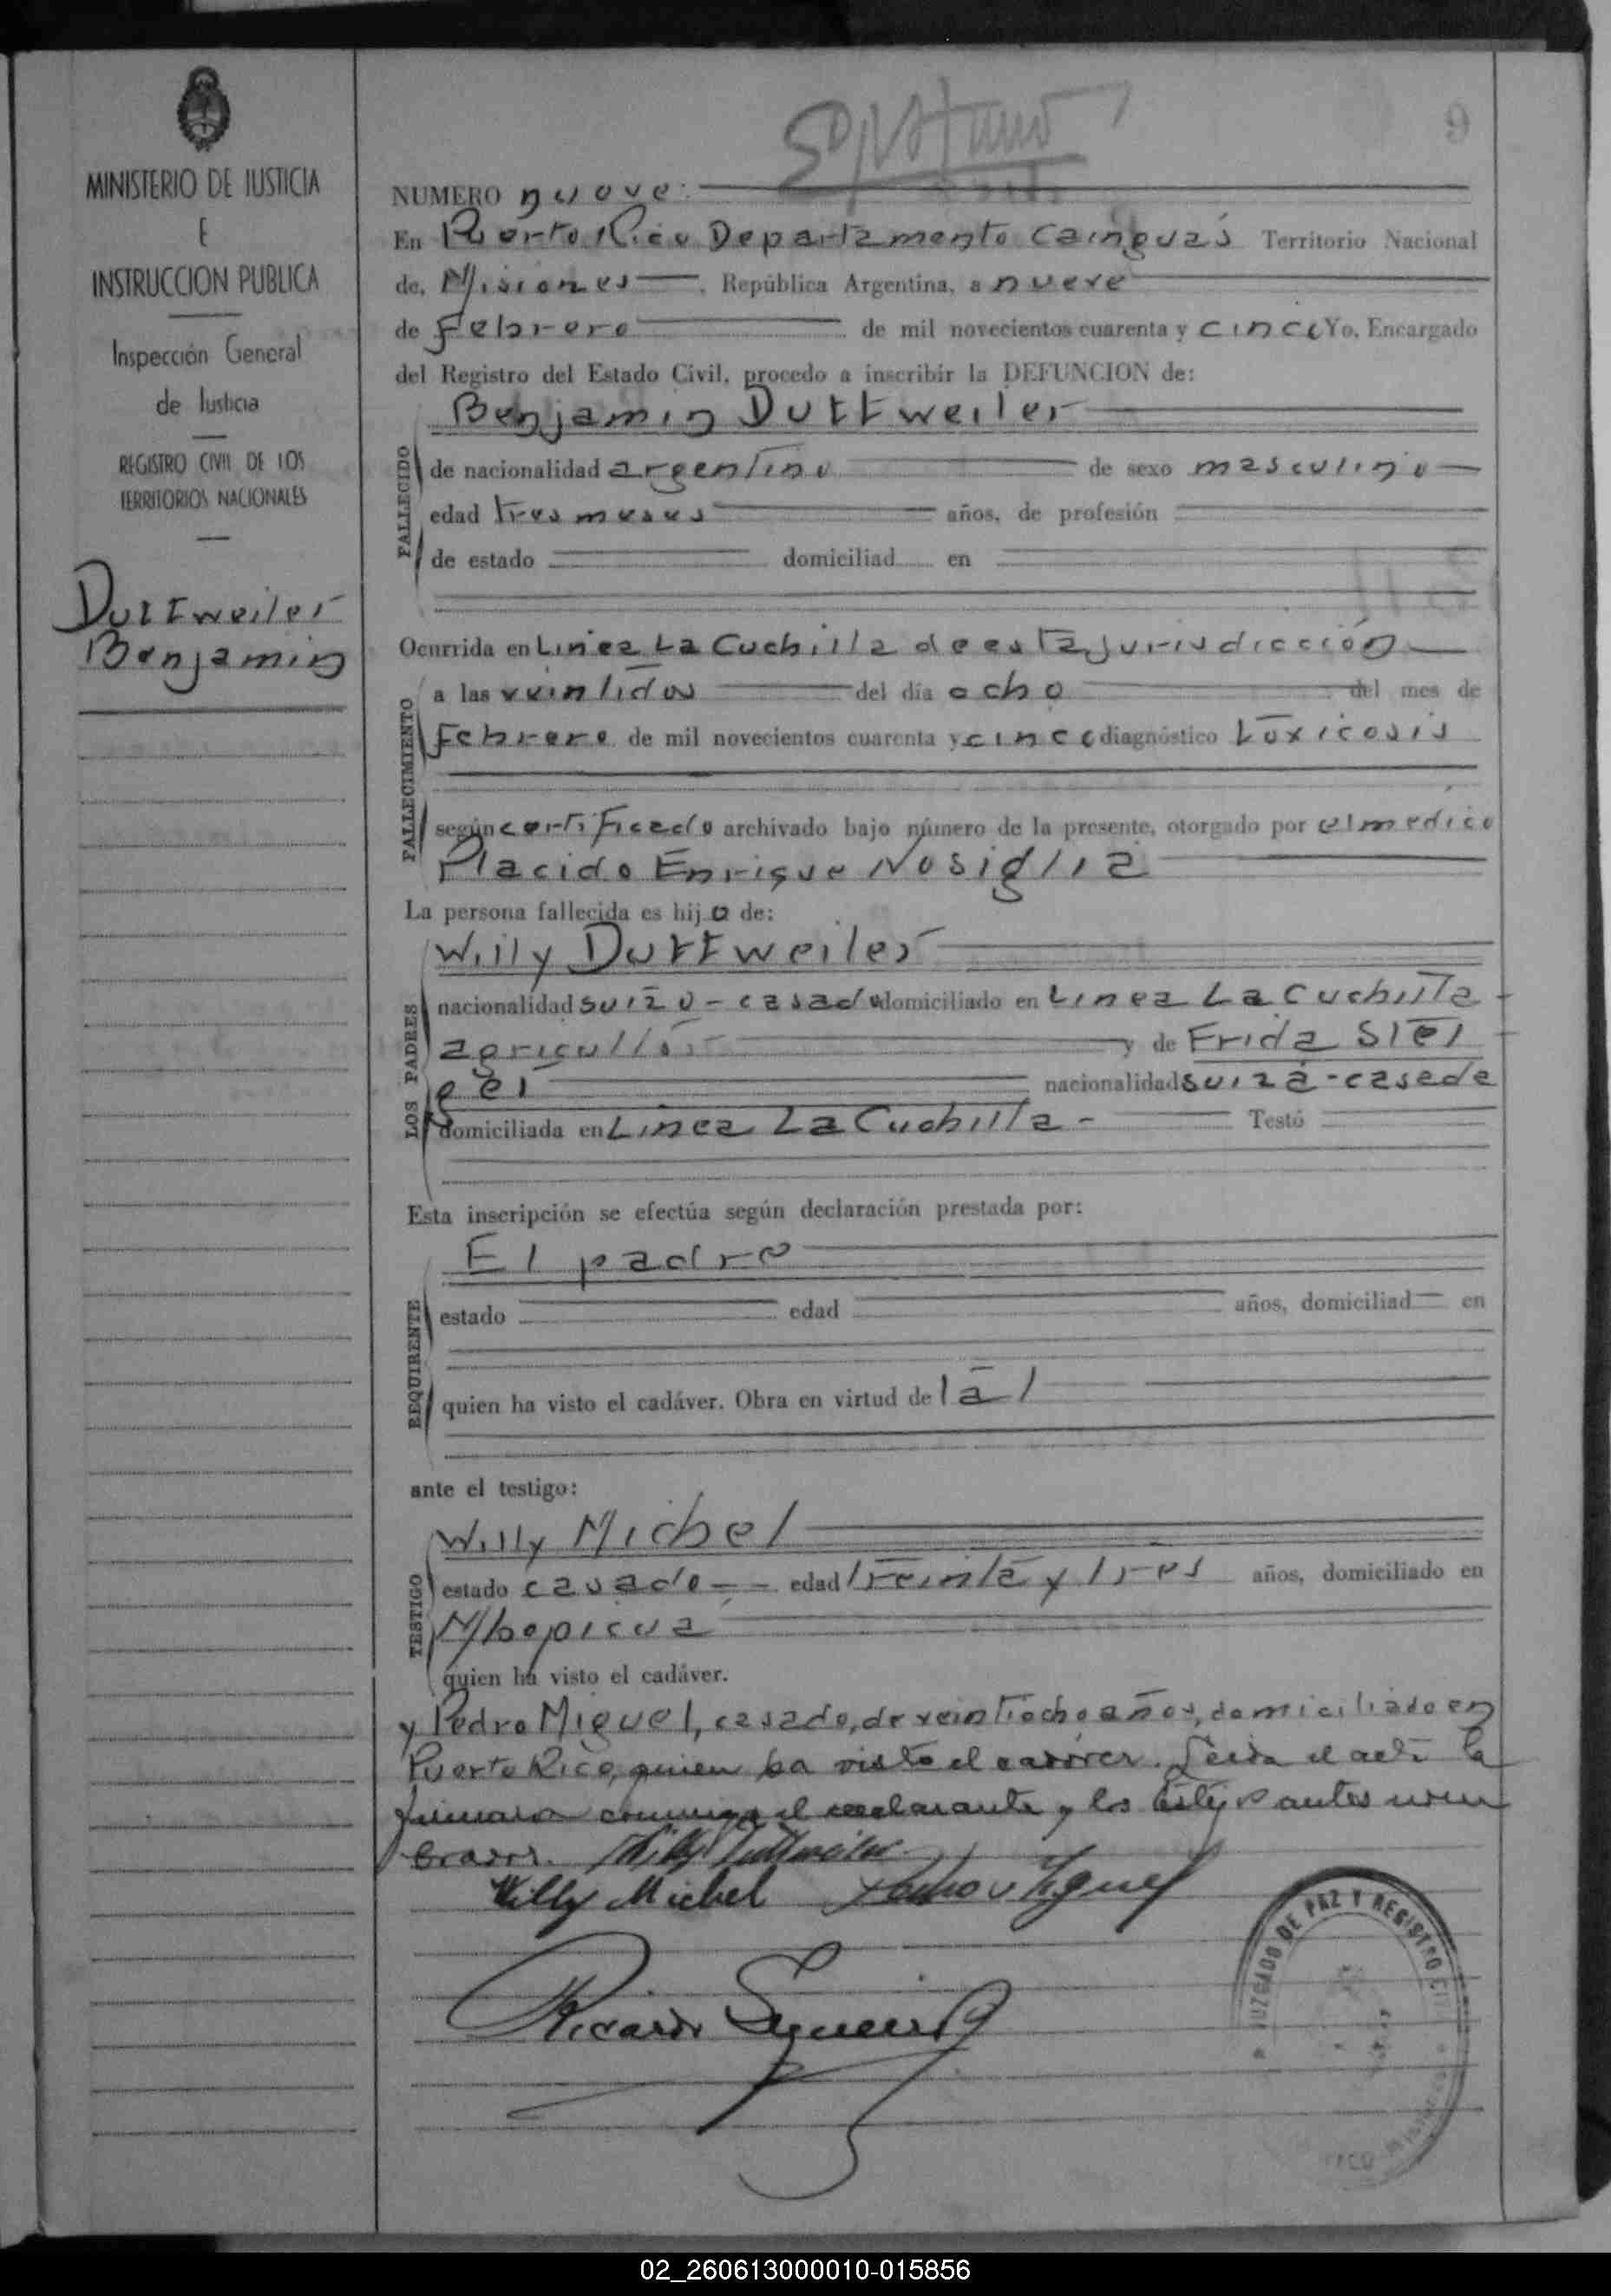 MINISTERIO DE JUSTICIA
E
INSTRUCCION PUBLICA
Inspección General
de Justicia
REGISTRO CIVIL DE LOS
TERRITORIOS NACIONALES
Duttweiler
Benjamin
9
NUMERO nueve:
En Puerto Rico Departamento Cainguás Territorio Nacional
de, Misiones, República Argentina, a nueve
de Febrero de mil novecientos cuarenta y cinco Yo, Encargado
del Registro del Estado Civil, procedo a inscribir la DEFUNCION de:
Benjamin Duttweiler
FALLECIDO
de nacionalidad argentino de sexo masculino
edad tres meses años, de profesión
de estado domiciliad en
Ocurrida en Linea La Cuchilla de esta jurisdicción
FALLECIMIENTO
a las veintidos del día ocho del mes de
Febrero de mil novecientos cuarenta y cinco diagnóstico tóxicosis
según certificado archivado bajo número de la presente, otorgado por el médico
Placido Enrique Nosiglia
La persona fallecida es hijo de:
Willy Duttweiler
LOS PADRES
nacionalidad suizo - casado domiciliado en Linea La Cuchilla -
agricultor y de Frida Stei
ger nacionalidad suiza - casada
domiciliada en Linea La Cuchilla - Testó
Esta inscripción se efectúa según declaración prestada por:
El padre
REQUIRENTE
estado edad años, domiciliad en
quien ha visto el cadáver. Obra en virtud de tal
ante el testigo:
Willy Michel
TESTIGO
estado casado - edad treinta y tres años, domiciliado en
Mbopicua
quien ha visto el cadáver.
y Pedro Miguel, casado, de veintiocho años, domiciliado en
Puerto Rico, quien ha visto el cadáver. Leida el acta la
firmaron conmigo el declarante y los testigos antes nom
brados. Willy Duttweiler
Willy Michel Pedro Miguel
Ricardo
JUZGADO DE PAZ Y REGISTRO CIVIL
02_260613000010-015856